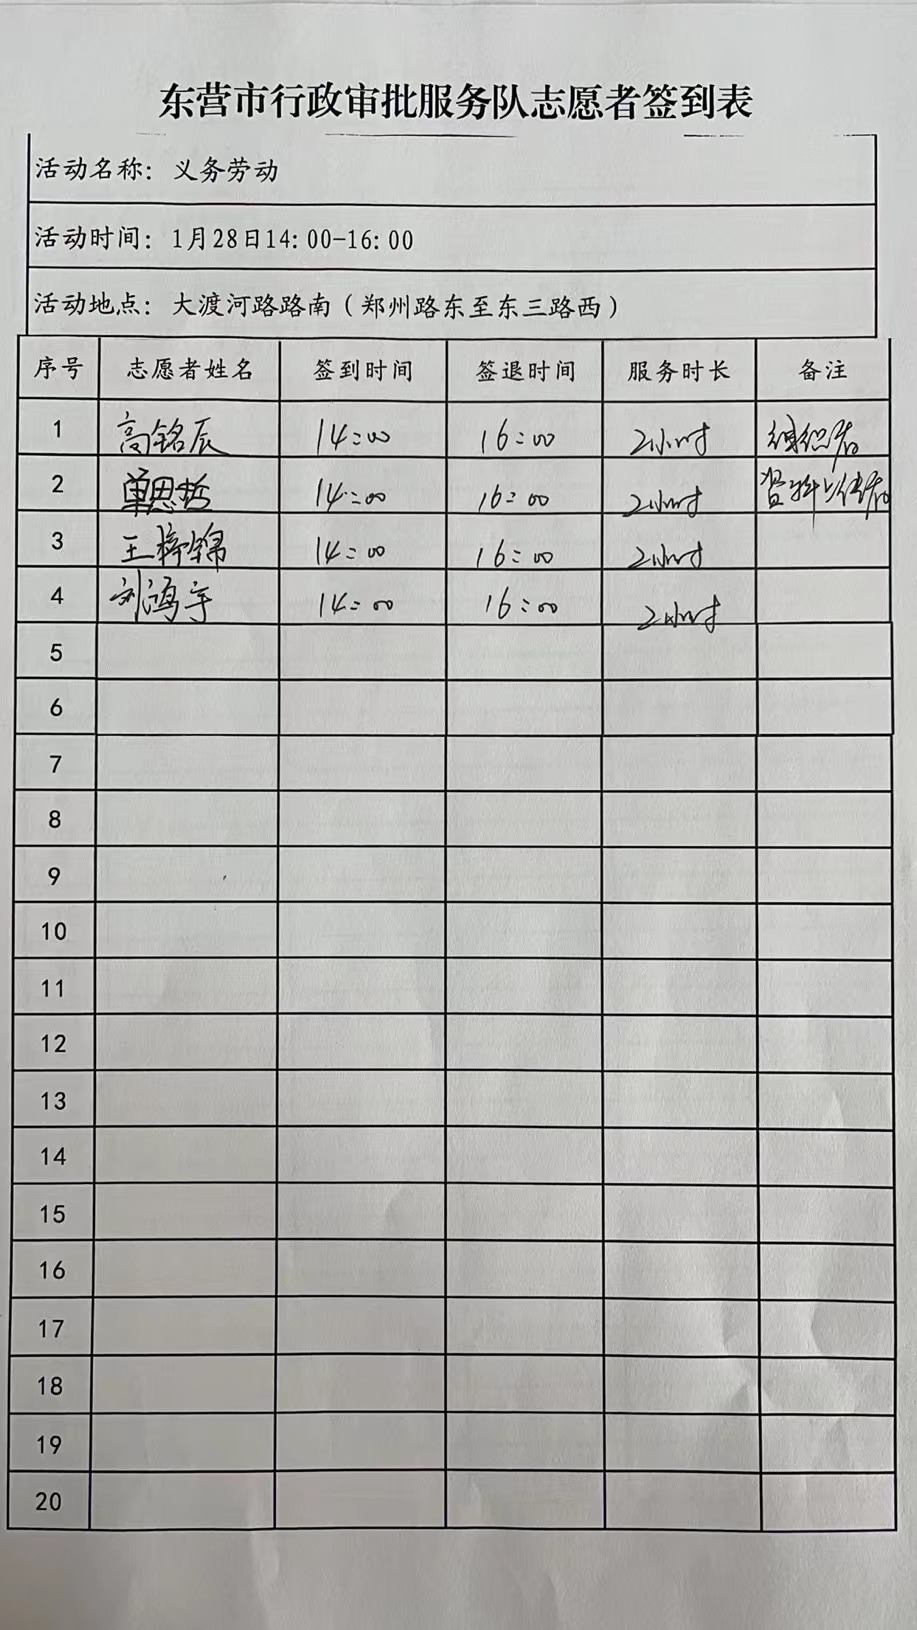 东营市行政审批服务队志愿者签到表
活动名称：义务劳动
活动时间：1月28日14:00-16:00
活动地点：大渡河路路南（郑州路东至东三路西）
序号 志愿者姓名 签到时间 签退时间 服务时长 备注
1 高铭辰 14:00 16:00 2小时 组织者
2 单思哲 14:00 16:00 2小时 资料上传者
3 王梓锦 14:00 16:00 2小时
4 刘鸿宇 14:00 16:00 2小时
5
6
7
8
9
10
11
12
13
14
15
16
17
18
19
20